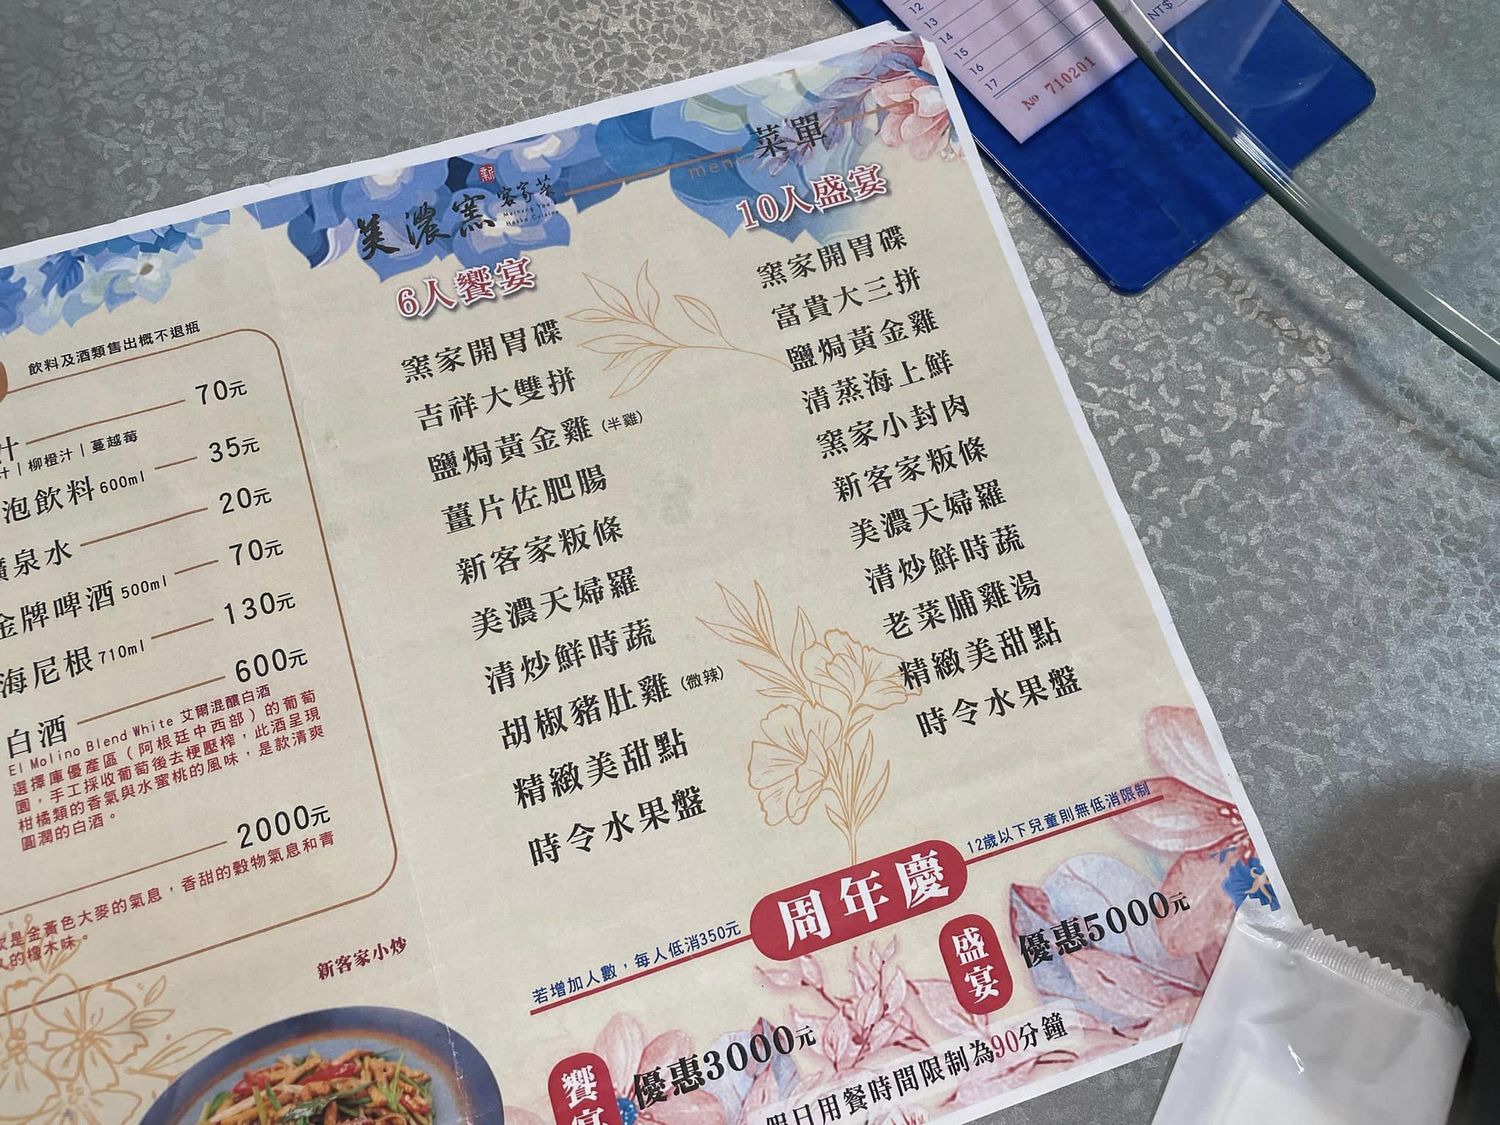 12
13
14
15
16
17
NT$
No 710201
菜單
menu
美濃窯
新
客家菜
Hakka Cuisine
6人饗宴
窯家開胃碟
吉祥大雙拼
鹽焗黃金雞(半雞)
薑片佐肥腸
新客家粄條
美濃天婦羅
清炒鮮時蔬
胡椒豬肚雞(微辣)
精緻美甜點
時令水果盤
10人盛宴
窯家開胃碟
富貴大三拼
鹽焗黃金雞
清蒸海上鮮
窯家小封肉
新客家粄條
美濃天婦羅
清炒鮮時蔬
老菜脯雞湯
精緻美甜點
時令水果盤
若增加人數，每人低消350元
周年慶
12歲以下兒童則無低消限制
饗宴
優惠3000元
盛宴
優惠5000元
假日用餐時間限制為90分鐘
飲料及酒類售出概不退瓶
汁 70元
汁｜柳橙汁｜蔓越莓
泡飲料600ml 35元
礦泉水 20元
金牌啤酒500ml 70元
海尼根710ml 130元
白酒 600元
El Molino Blend White 艾爾混釀白酒
選擇庫優產區（阿根廷中西部）的葡萄
園，手工採收葡萄後去梗壓榨，此酒呈現
柑橘類的香氣與水蜜桃的風味，是款清爽
圓潤的白酒。
2000元
是金黃色大麥的氣息，香甜的穀物氣息和青
的橡木味。
新客家小炒